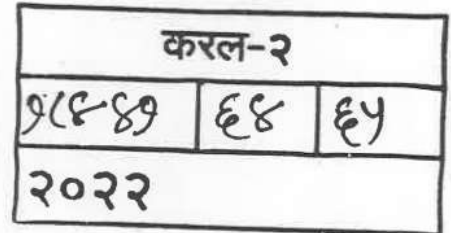 करल-२
१८४४१ ६४ ६५
२०२२